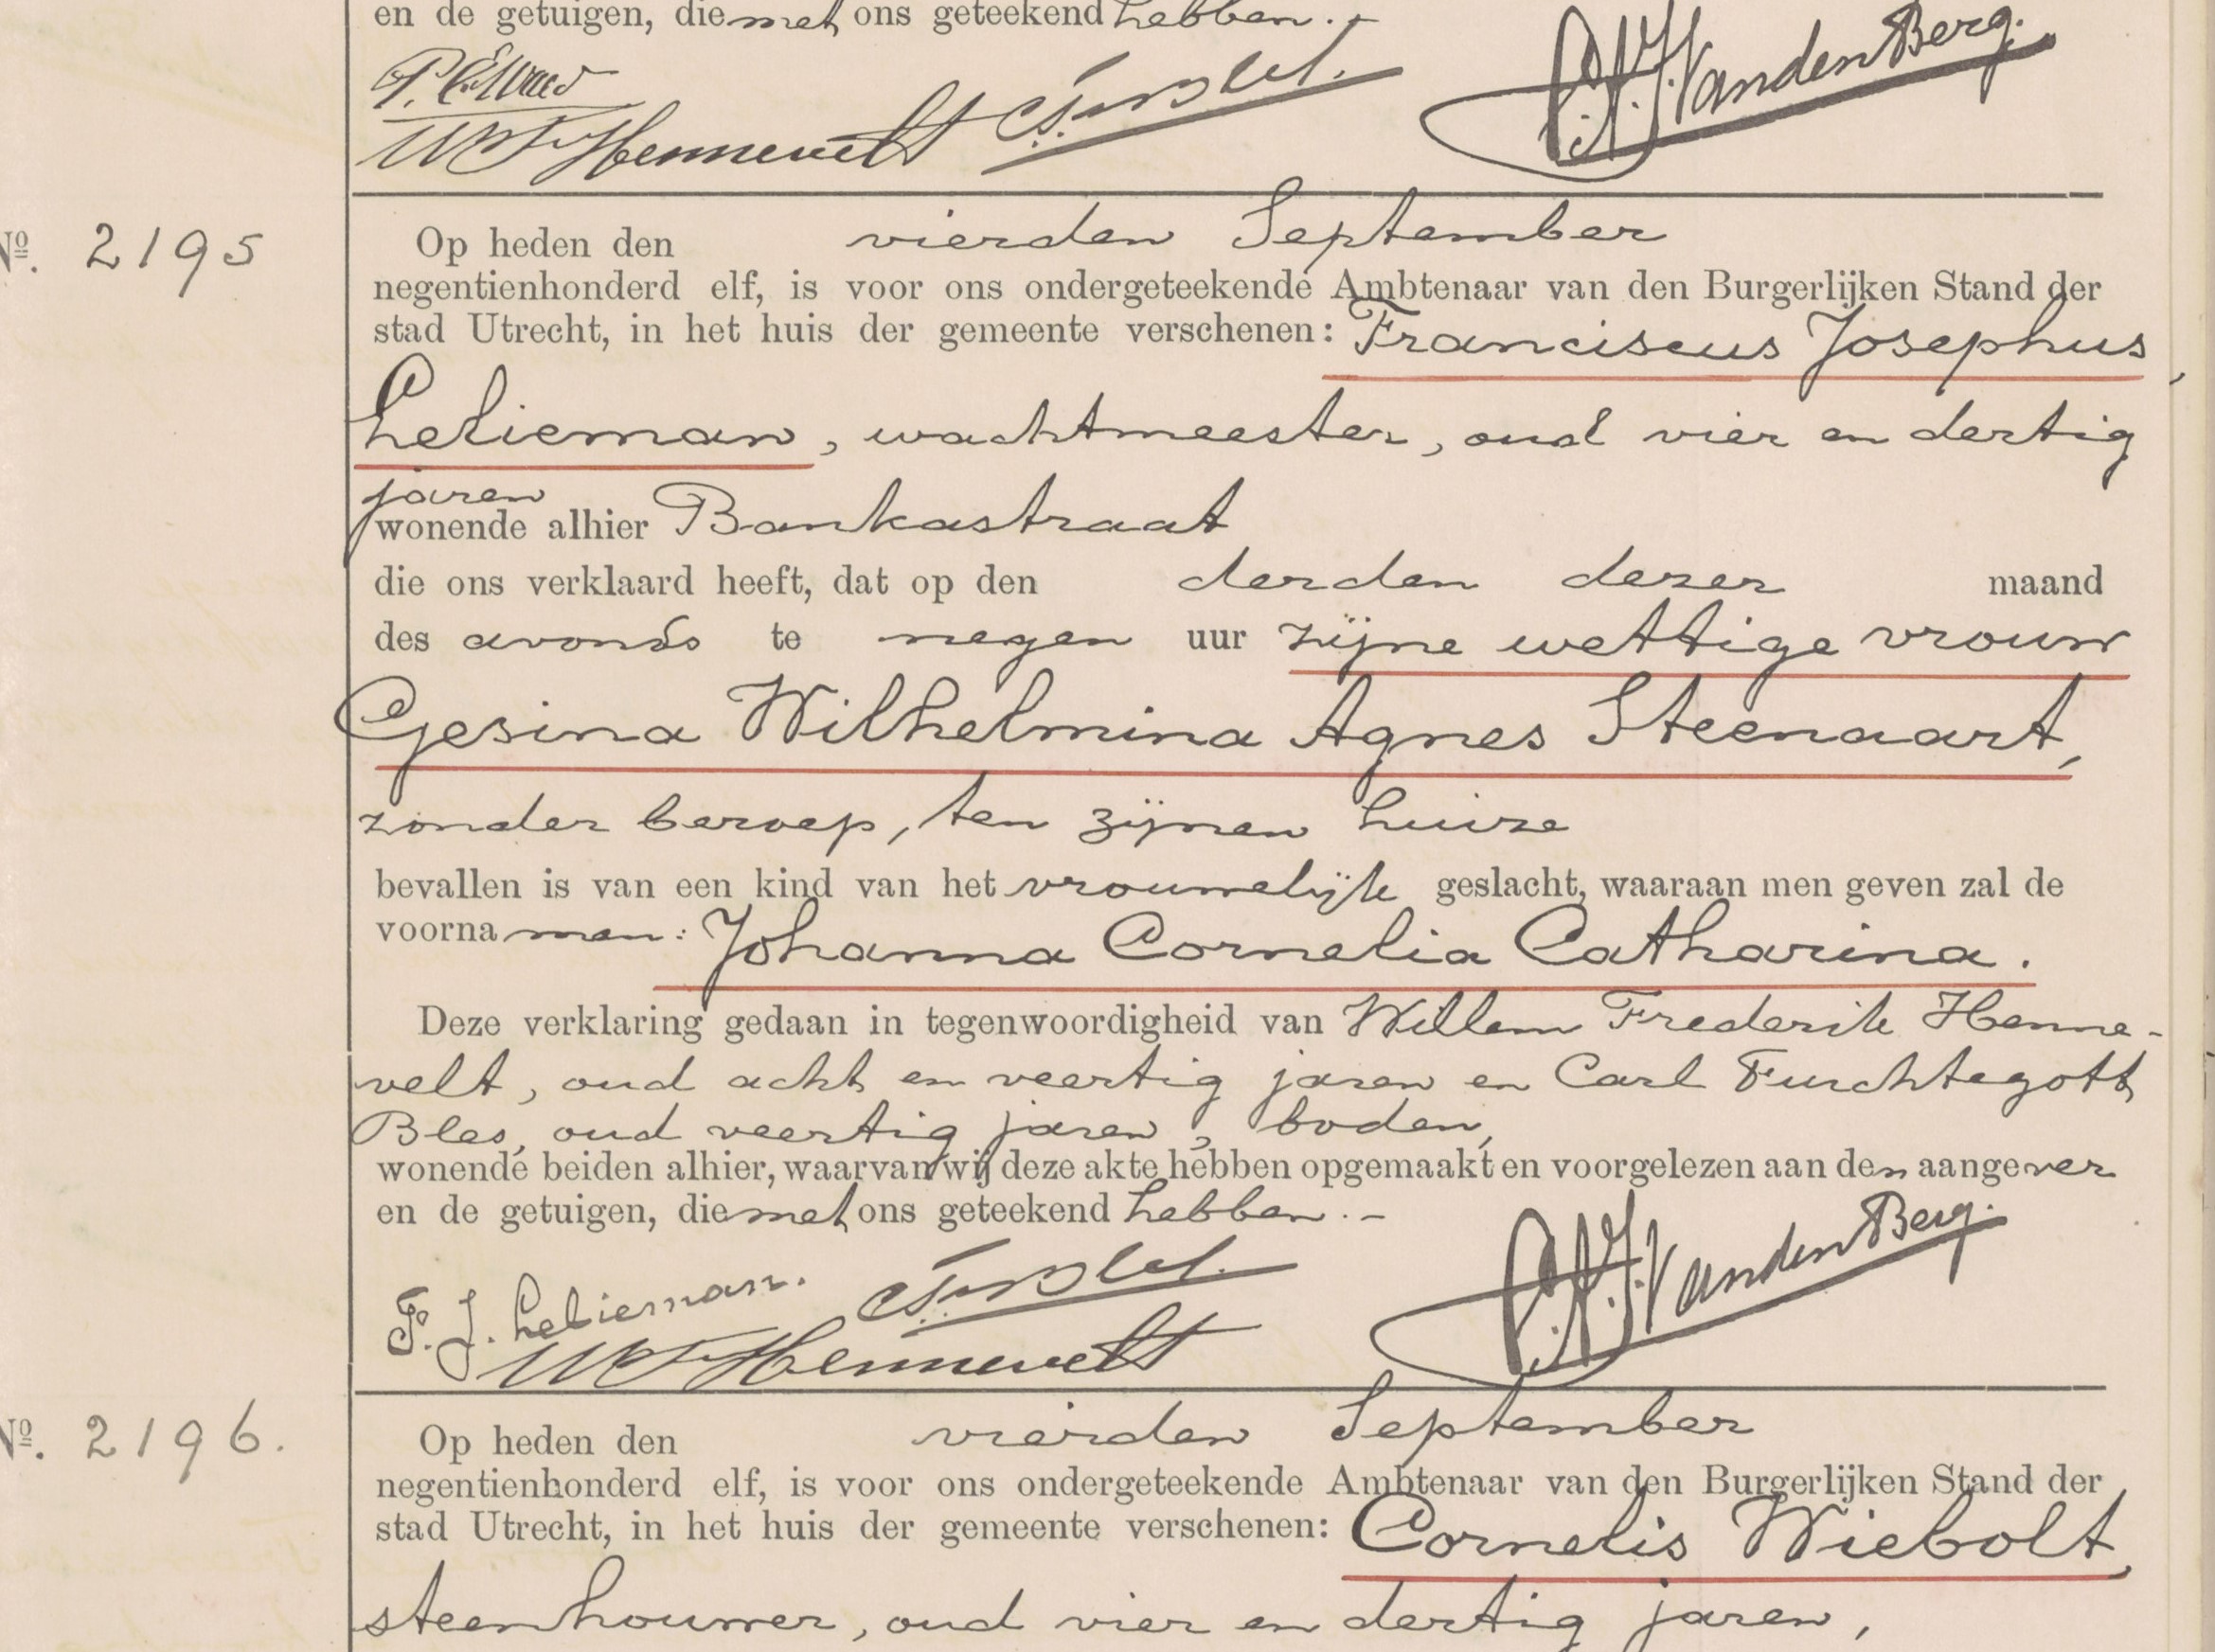 en de getuigen, die met ons geteekend hebben.-
WF Hennevelt CF Bles. VandenBerg.
No. 2195
Op heden den vierden September
negentienhonderd elf, is voor ons ondergeteekende Ambtenaar van den Burgerlijken Stand der
stad Utrecht, in het huis der gemeente verschenen: Franciscus Josephus
Lelieman, wachtmeester, oud vier en dertig
jaren
wonende alhier Bankastraat
die ons verklaard heeft, dat op den derden dezer maand
des avonds te negen uur zijne wettige vrouw
Gesina Wilhelmina Agnes Steenaart,
zonder beroep, ten zijnen huize
bevallen is van een kind van het vrouwelijk geslacht, waaraan men geven zal de
voornamen: Johanna Cornelia Catharina.
Deze verklaring gedaan in tegenwoordigheid van Willem Frederik Henne-
velt, oud acht en veertig jaren en Carl Furchtegott
Bles, oud veertig jaren, boden,
wonende beiden alhier, waarvan wij deze akte hebben opgemaakt en voorgelezen aan den aangever
en de getuigen, die met ons geteekend hebben.-
F. J. Lelieman. CF Bles. VandenBerg.
WF Hennevelt
No. 2196.
Op heden den vierden September
negentienhonderd elf, is voor ons ondergeteekende Ambtenaar van den Burgerlijken Stand der
stad Utrecht, in het huis der gemeente verschenen: Cornelis Wiebolt,
steenhouwer, oud vier en dertig jaren,